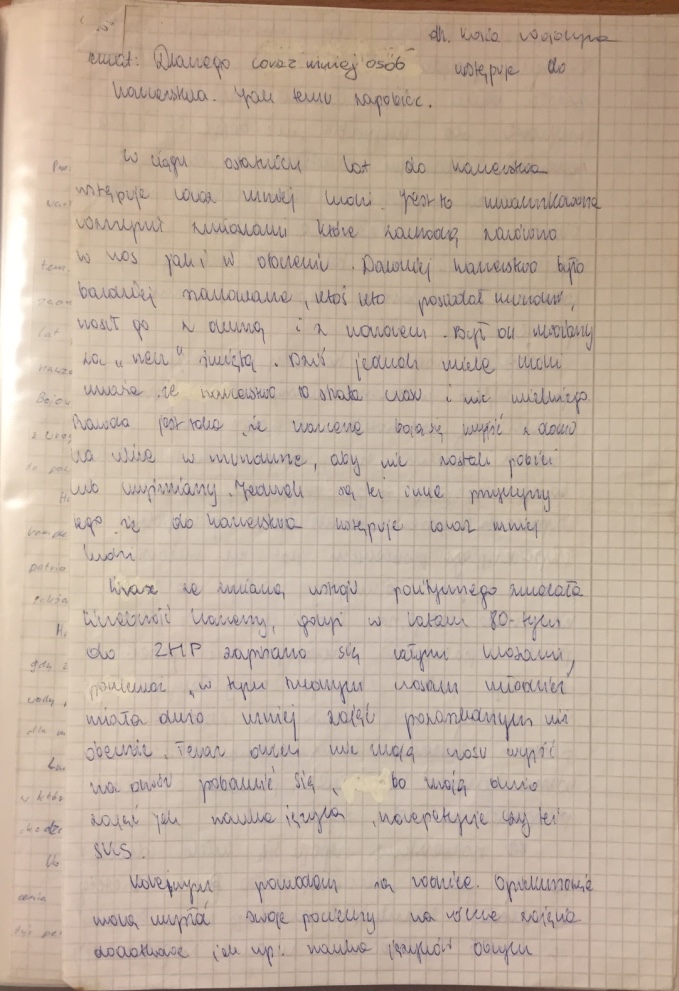 dh. Kasia
temat: Dlaczego coraz mniej osób wstępuje do
harcerstwa. Jak temu zapobiec.
W ciągu ostatnich lat do harcerstwa
wstępuje coraz mniej ludzi. Jest to uwarunkowane
zmianami które zachodzą zarówno
w nas jak i w otoczeniu. Dawniej harcerstwo było
bardziej szanowane, ktoś kto posiadał mundur,
nosił go z dumą i z honorem. Był on uważany
za "świętą". Dziś jednak wiele ludzi
uważa, że harcerstwo to strata czasu i nic wielkiego
Prawda jest taka, że harcerze boją się wyjść z domu
na ulicę w mundurze, aby nie zostali pobici
lub wyśmiany. Jednak są też inne przyczyny
tego, że do harcerstwa wstępuje coraz mniej
ludzi.
Wraz ze zmianą ustroju politycznego zmalała
liczebność harcerzy, gdyż w latach 80-tych
do ZHP zapisano się całymi klasami,
ponieważ w tych trudnych czasach młodzież
miała dużo mniej zajęć pozaszkolnych niż
obecnie. Teraz dzieci nie mają czasu wyjść
na dwór pobawić się, bo mają dużo
zajęć jak nauka języka, korepetycje czy też
SKS.
Kolejnym powodem są rodzice. Opiekunowie
wolą wysłać swoje pociechy na różne zajęcia
dodatkowe jak np: nauka języków obcych